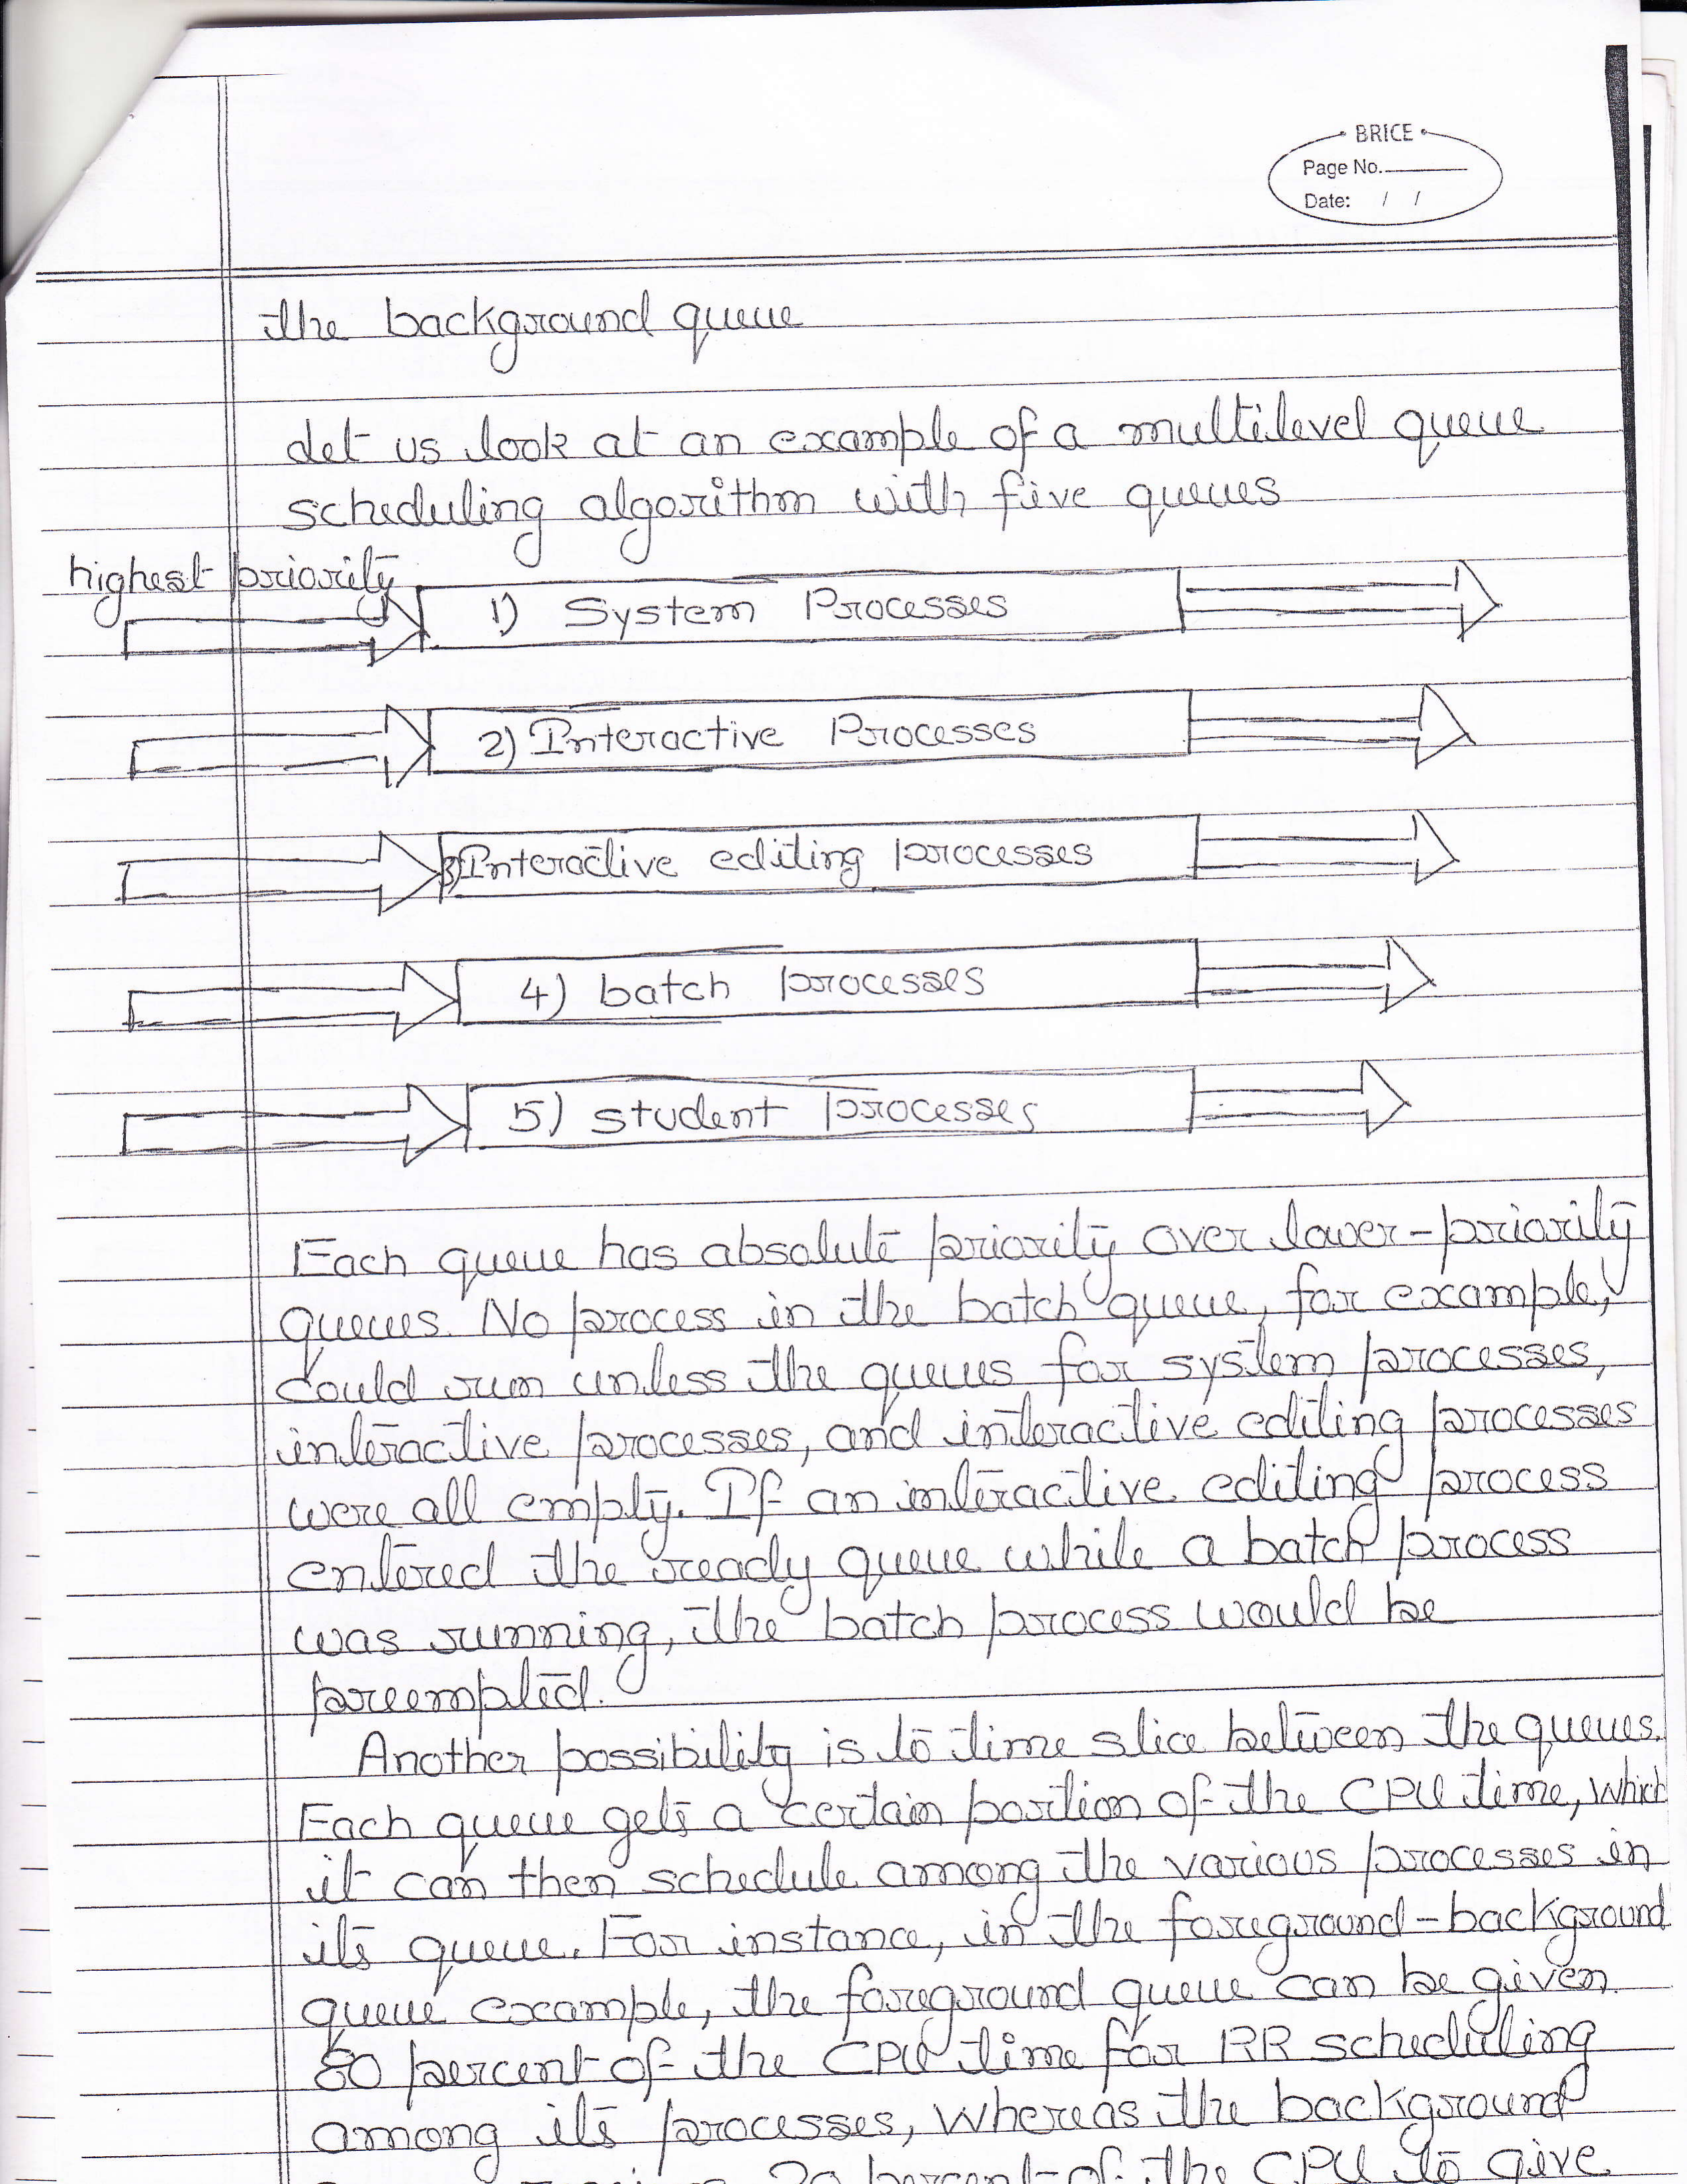 BRICE
Page No.
Date: / /
the background queue
Let us look at an example of a multilevel queue
scheduling algorithm with five queues
highest priority
1) System Processes
2) Interactive Processes
3) Interactive editing processes
4) batch processes
5) student processes
Each queue has absolute priority over lower-priority
queues. No process in the batch queue, for example,
could run unless the queues for system processes,
interactive processes, and interactive editing processes
were all empty. If an interactive editing process
entered the ready queue while a batch process
was running, the batch process would be
preempted.
Another possibility is to time slice between the queues.
Each queue gets a certain portion of the CPU time, which
it can then schedule among the various processes in
its queue. For instance, in the foreground-background
queue example, the foreground queue can be given
80 percent of the CPU time for RR scheduling
among its processes, whereas the background
20 percent of the CPU to give